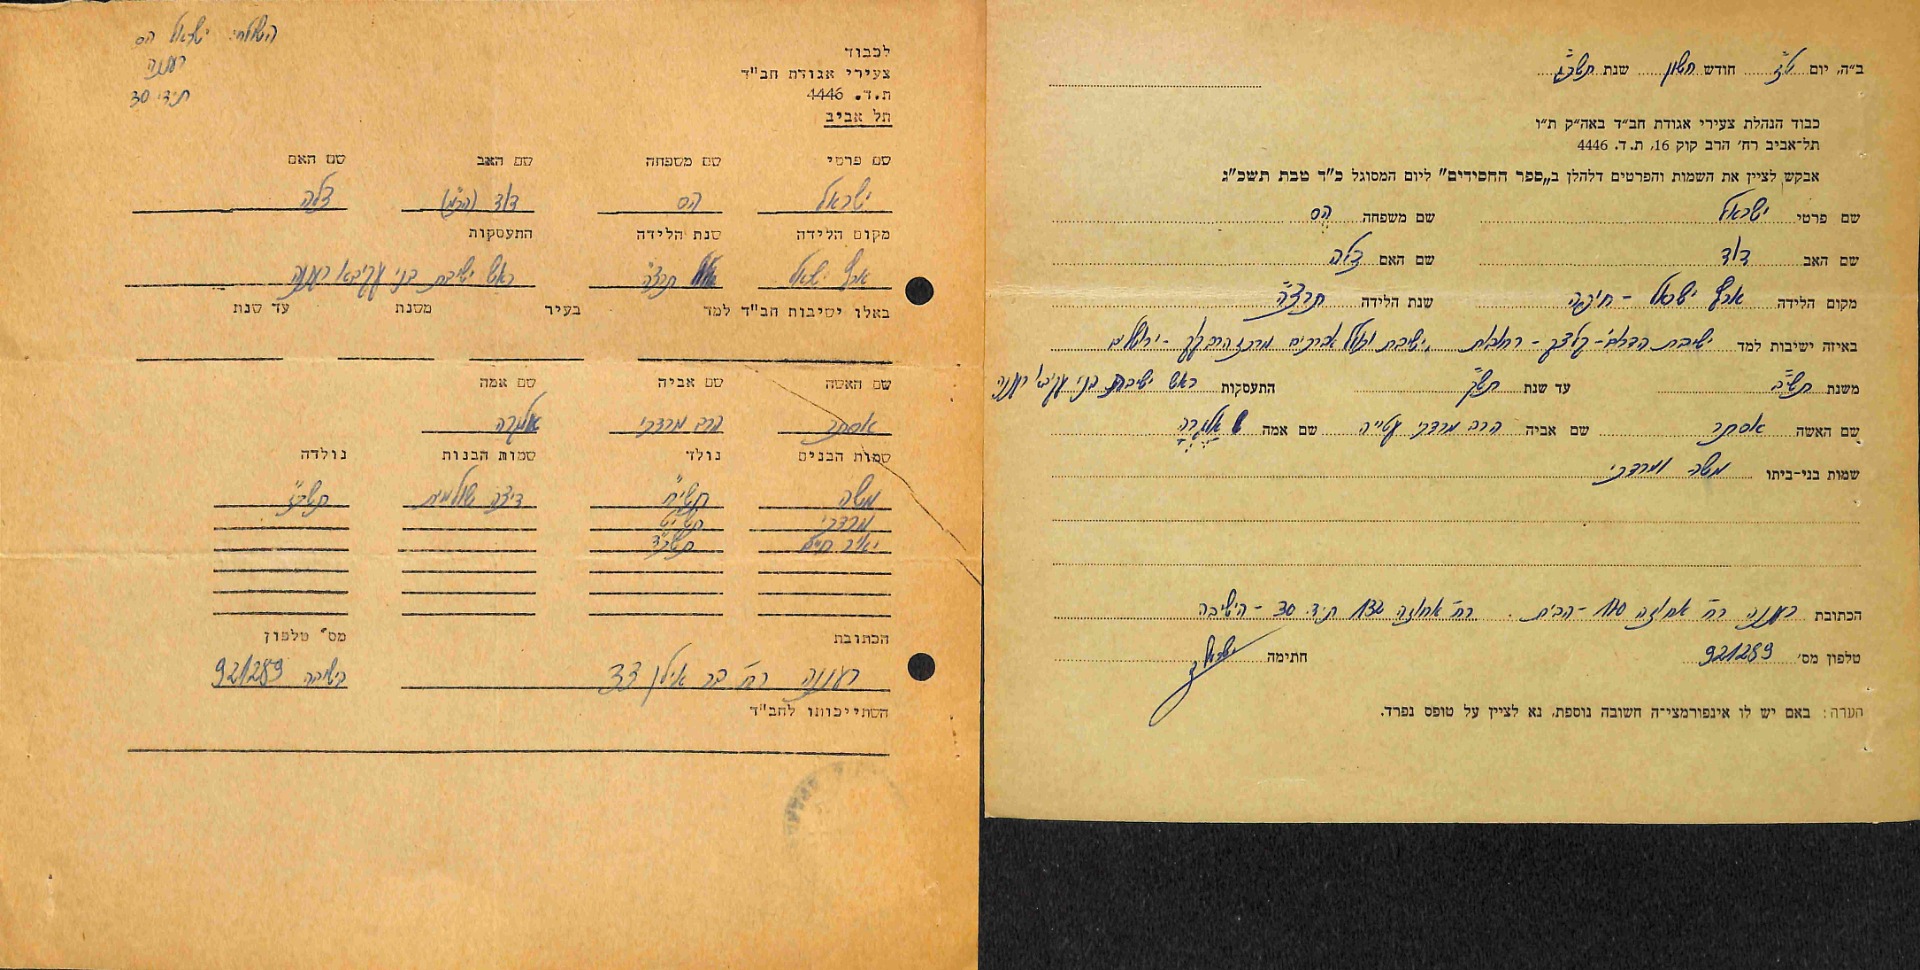 ב"ה, יום ט"ז חודש חשון שנת תשכ"ג
כבוד הנהלת צעירי אגודת חב"ד באה"ק ת"ו
תל-אביב רח' הרב קוק 16, ת.ד. 4446
אבקש לציין את השמות והפרטים דלהלן ב„ספר החסידים" ליום המסוגל כ"ד טבת תשכ"ג
שם פרטי ישראל שם משפחה הס
שם האב דוד שם האם צילה
מקום הלידה ארץ ישראל - חיפה שנת הלידה תרצ"ה
באיזה ישיבות למד ישיבת הדרום - רחובות ישיבת וכולל אברכים מרכז הרב - ירושלים
משנת תשי"ב עד שנת תש"ך התעסקות ראש ישיבת בני עקיבא רעננה
שם האשה אסתר שם אביה הרב מרדכי עטייה שם אמה אלגרה
שמות בני-ביתו משה ומרדכי
הכתובת רעננה רח' אחוזה 110 - הבית. רח' אחוזה 132 ת.ד. 30 - הישיבה
טלפון מס' 921289 חתימה
הערה: באם יש לו אינפורמצי-ה חשובה נוספת, נא לציין על טופס נפרד.
השולח: ישראל הס
רעננה
ת.ד. 30
לכבוד
צעירי אגודת חב"ד
ת.ד. 4446
תל אביב
שם פרטי שם משפחה שם האב שם האם
ישראל הס דוד צילה
מקום הלידה שנת הלידה התעסקות
ארץ ישראל תרצ"ה ראש ישיבת בני עקיבא רעננה
באלו ישיבות חב"ד למד בעיר משנת עד שנת
שם האשה שם אביה שם אמה
אסתר הרב מרדכי אלגרה
שמות הבנים נולד שמות הבנות נולדה
משה תשי"ח דיצה שולמית
מרדכי תשי"ט
יאיר חיים תשכ"ד
הכתובת מס' טלפון
רעננה רח' בר אילן 33 הישיבה 921289
השתייכותו לחב"ד